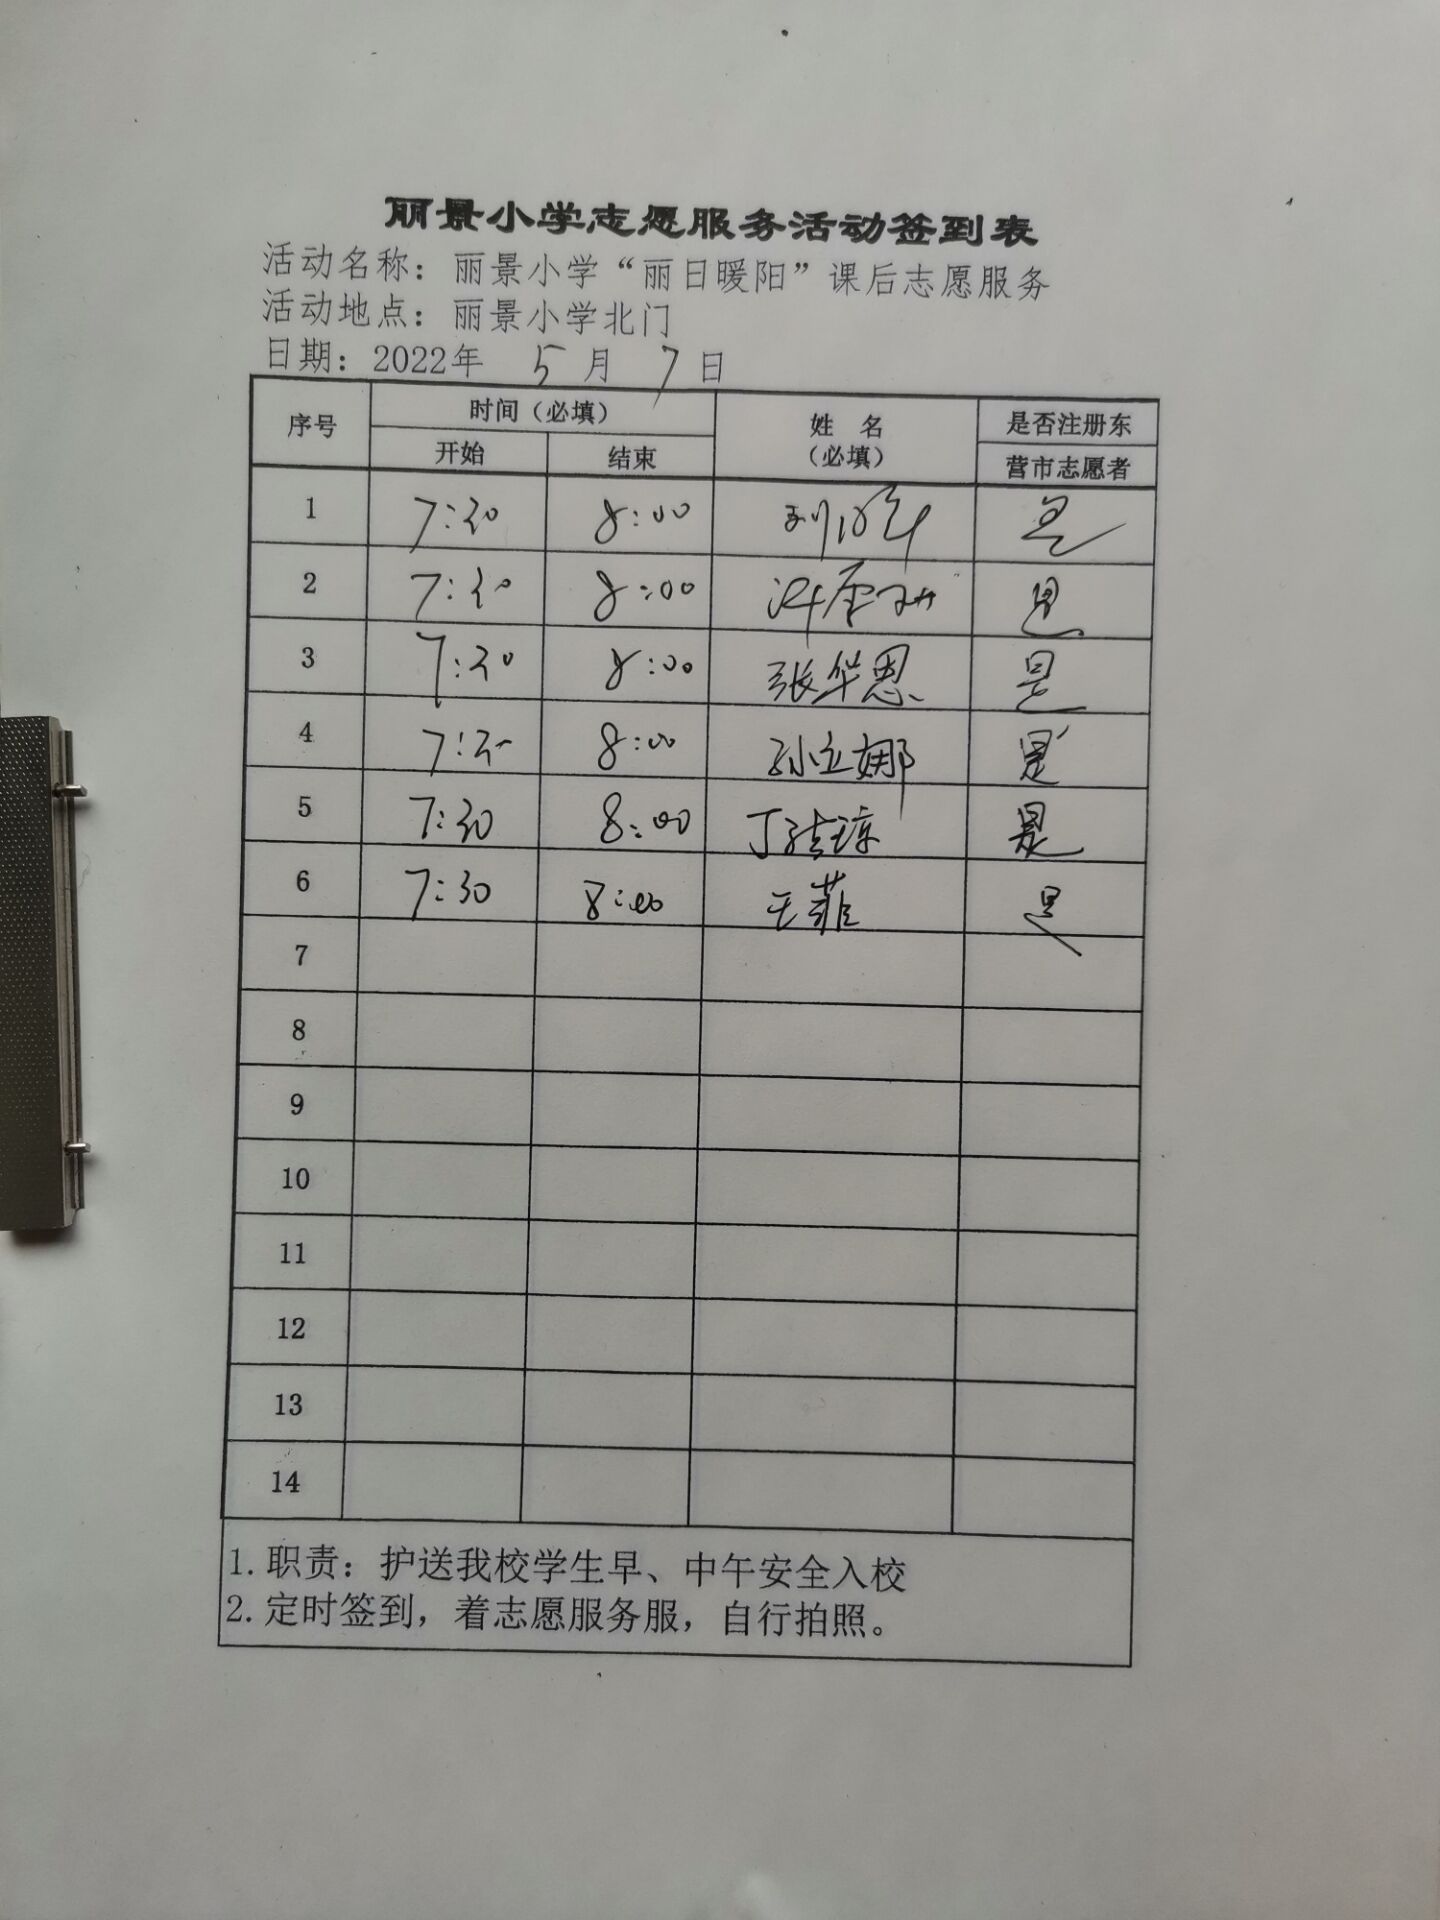 丽景小学志愿服务活动签到表
活动名称：丽景小学“丽日暖阳”课后志愿服务
活动地点：丽景小学北门
日期：2022年 5 月 7 日
序号 时间（必填） 姓 名（必填） 是否注册东营市志愿者
开始 结束
1 7:30 8:00 是
2 7:30 8:00 是
3 7:30 8:00 张华恩 是
4 7:30 8:00 孙立娜 是
5 7:30 8:00 是
6 7:30 8:00 王菲 是
7
8
9
10
11
12
13
14
1.职责：护送我校学生早、中午安全入校
2.定时签到，着志愿服务服，自行拍照。